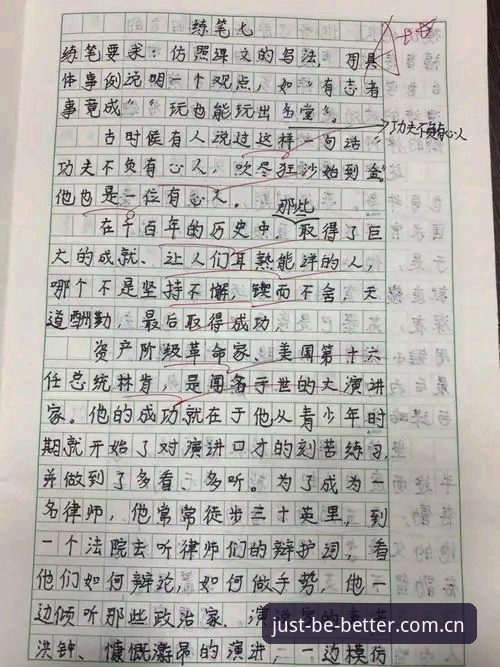 练笔七
练笔要求：仿照课文的写法，用具
体事例说明一个观点，如“有志者
事竟成”“玩也能玩出名堂”。
功夫不负有心人
古时候有人说过这样一句话
功夫不负有心人，吹尽狂沙始到金。
他也是一位有心人。
那些
在千百年的历史中，取得了巨
大的成就、让人们耳熟能详的人，
哪个不是坚持不懈，锲而不舍，天
道酬勤，最后取得成功，
资产阶级革命家、美国第十六
任总统林肯，是闻名于世的大演讲
家。他的成功就在于他从青少年时
期就开始了对演讲口才的刻苦练习，
并做到了多看、多听。为了成为一
名律师，他常常徒步三十英里，到
一个法院去听律师们的辩护词，看
他们如何辩论，如何做手势，他一
边倾听那些政治家、演说家的声若
洪钟、慷慨激昂的演进，一边模仿
just-be-better.com.cn